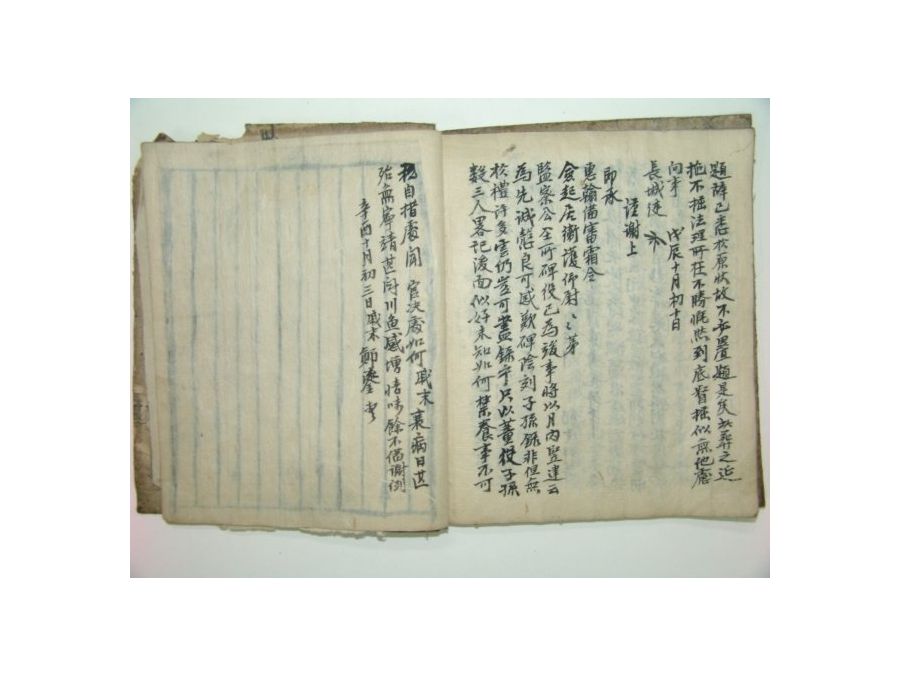 題辭已悉於原狀故不必疊題是矣如葬之近
拖不掘法理所在不勝慨然到底督掘似無他慮
向事 戊辰十月初十日
長城徒
謹謝上
即承
惠翰備審霜令
僉起居衛護仰尉〻〻第
監察公全所碑役已爲竣事將以月內竪建云
爲先誠慤良可感歎碑陰刻子孫錄非但無
於禮許多雲仍豈可盡錄乎只以董役子孫
數三人畧記後面似好未知如何禁養事不可
私自措處聞 官決處如何戚末衰病日甚
殆無寧靖甚悶川魚感愧情味餘不備謝例
辛酉十月初三日戚末鄭